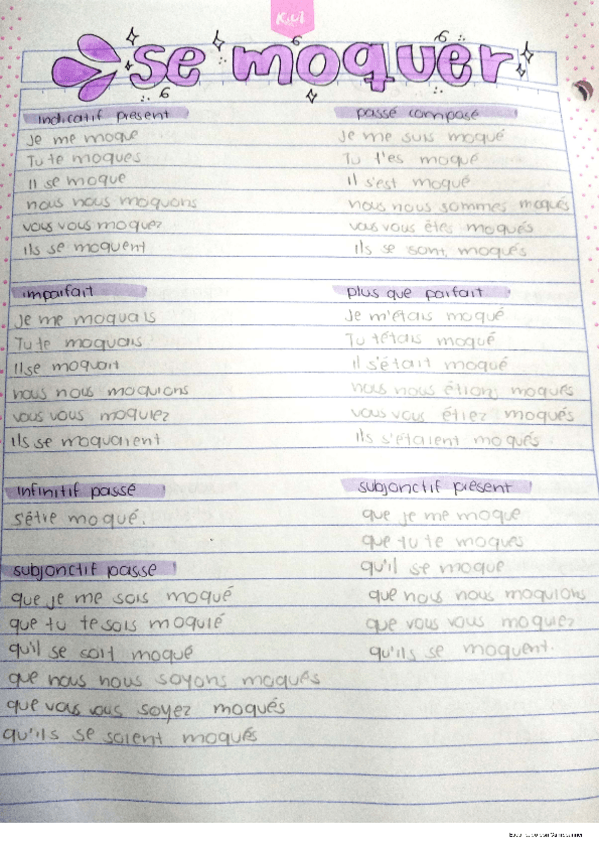 Kiut
se moquer
indicatif présent
Je me moque
Tu te moques
Il se moque
nous nous moquons
vous vous moquez
ils se moquent
passé composé
Je me suis moqué
Tu t'es moqué
il s'est moqué
nous nous sommes moqués
vous vous êtes moqués
Ils se sont moqués
imparfait
Je me moquais
Tu te moquais
Il se moquait
nous nous moquions
vous vous moquiez
ils se moquaient
plus que parfait
Je m'étais moqué
Tu t'étais moqué
il s'était moqué
nous nous étions moqués
vous vous étiez moqués
Ils s'étaient moqués
infinitif passé
s'être moqué.
subjonctif présent
que je me moque
que tu te moques
qu'il se moque
que nous nous moquions
que vous vous moquiez
qu'ils se moquent.
subjonctif passé
que je me sois moqué
que tu te sois moquié
qu'il se soit moqué
que nous nous soyons moqués
que vous vous soyez moqués
qu'ils se soient moqués